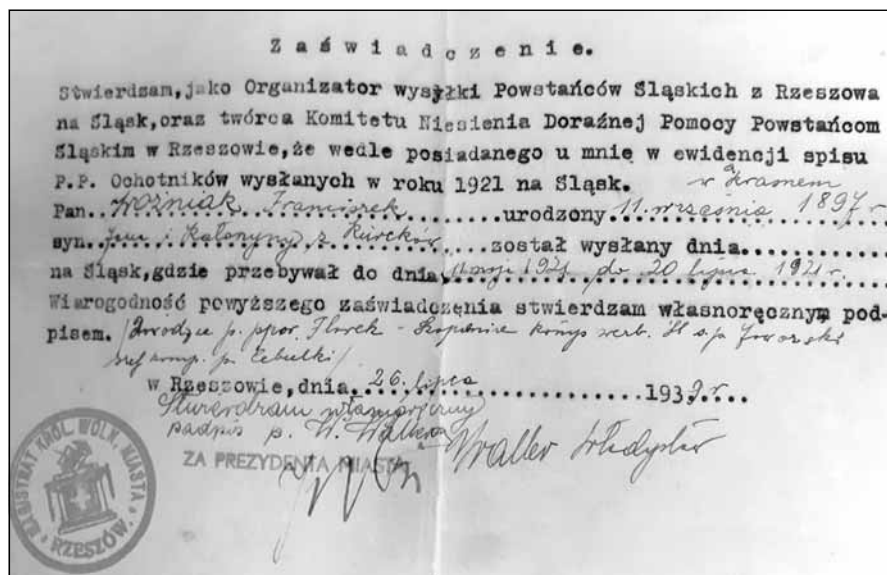 Zaświadczenie.
Stwierdzam,jako Organizator wysyłki Powstańców Śląskich z Rzeszowa
na Śląsk,oraz twórca Komitetu Niesienia Doraźnej Pomocy Powstańcom
Śląskim w Rzeszowie,że wedle posiadanego u mnie w ewidencji spisu
P.P. Ochotników wysłanych w roku 1921 na Śląsk. w Krasnem
Pan..Woźniak Franciszek.........urodzony 11.września 1897 r
syn.Jana i Katarzyny z Kurców.....został wysłany dnia..............
na Śląsk,gdzie przebywał do dnia, maja 1921 do 20 lipca 1921 r.
Wiarogodność powyższego zaświadczenia stwierdzam własnoręcznym pod-
pisem. p. ppor. Florek - komp.
komp. p. Cebulki/
w Rzeszowie,dnia.26.lipca......................1937 r....
Stwierdzam własnoręczny
podpis p. W. Wallera Waller Władysław
ZA PREZYDENTA MIASTA
MAGISTRAT KRÓL. WOLN. MIASTA RZESZÓW.